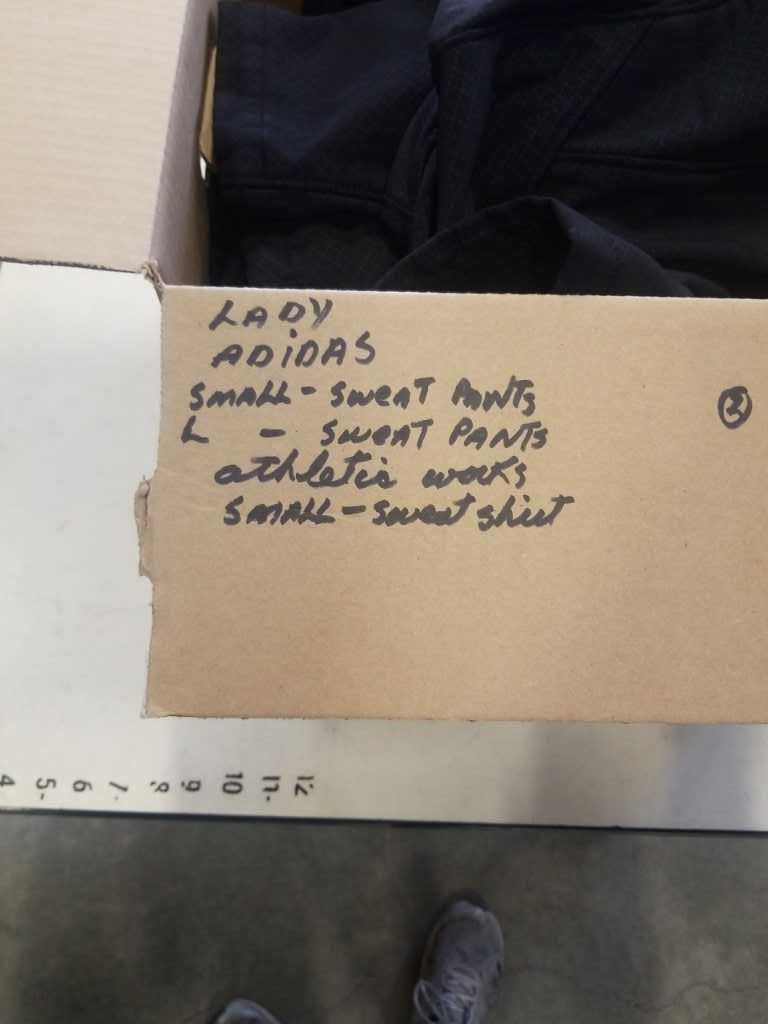 LADY
ADiDAS
SMALL - SWEAT PANTS
L - SWEAT PANTS
athletic works
SMALL - sweat shirt
2
4 5- 6 7- 8 9 10 11- 12